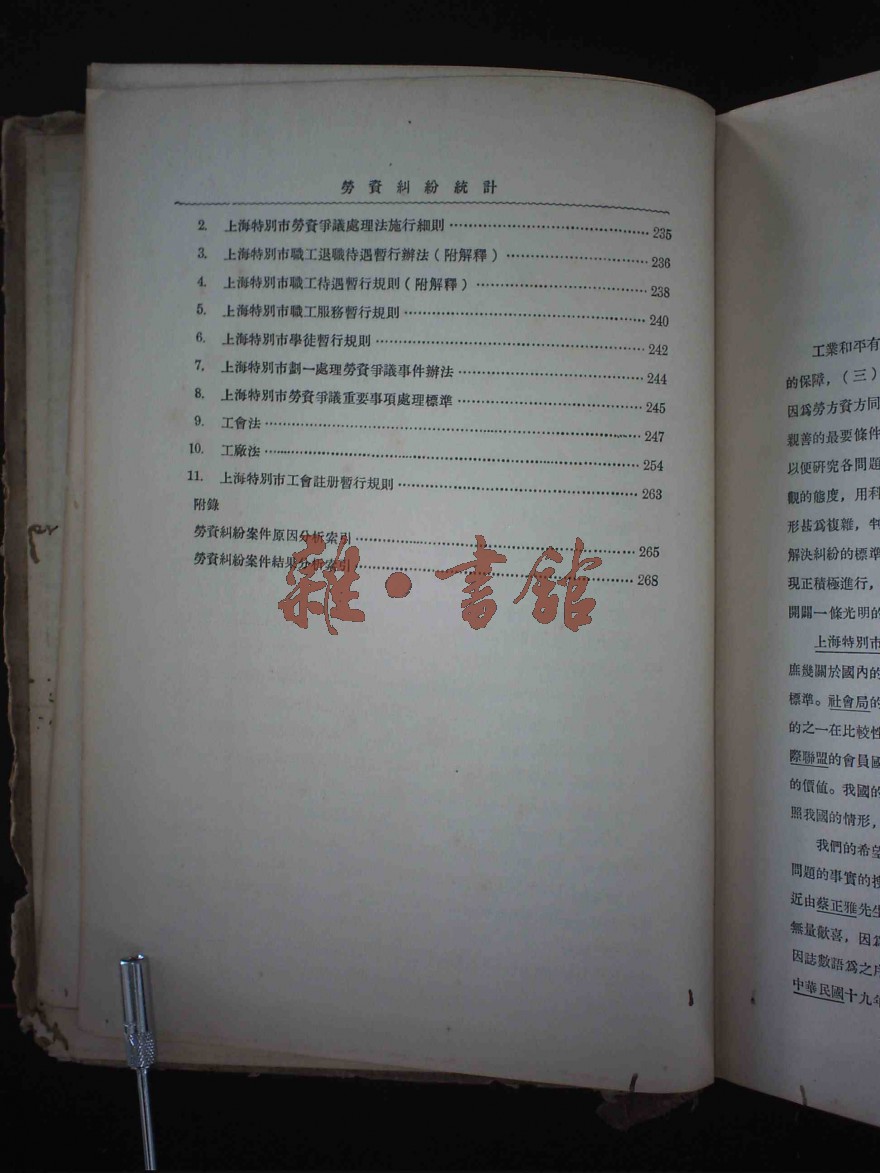 勞資糾紛統計
2. 上海特別市勞資爭議處理法施行細則 235
3. 上海特別市職工退職待遇暫行辦法(附解釋) 236
4. 上海特別市職工待遇暫行規則(附解釋) 238
5. 上海特別市職工服務暫行規則 240
6. 上海特別市學徒暫行規則 242
7. 上海特別市劃一處理勞資爭議事件辦法 244
8. 上海特別市勞資爭議重要事項處理標準 245
9. 工會法 247
10. 工廠法 254
11. 上海特別市工會註册暫行規則 263
附錄
勞資糾紛案件原因分析索引 265
勞資糾紛案件結果分析索引 268
雜·書館
工業和平有
的保障,(三)
因爲勞方資方同
親善的最要條件
以便研究各問題
觀的態度,用科
形甚爲複雜,判
解決糾紛的標準
現正積極進行,
開闢一條光明的
上海特別市
庶幾關於國內的
標準。社會局的
的之一在比較性
際聯盟的會員國
的價值。我國的
照我國的情形,
我們的希望
問題的事實的搜
近由蔡正雅先生
無量歡喜,因爲
因誌數語爲之序
中華民國十九年